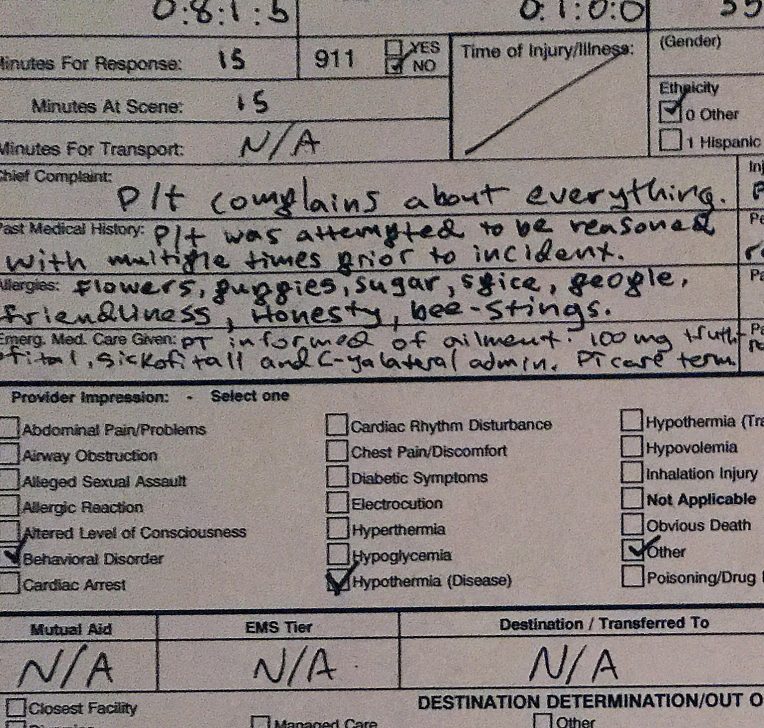 0:8:1:5 0:1:0:0 55
Minutes For Response: 15 911 YES NO Time of Injury/Illness: (Gender)
Minutes At Scene: 15 Ethnicity
0 Other
Minutes For Transport: N/A 1 Hispanic
Chief Complaint: P/t complains about everything. Inj
Past Medical History: P/t was attempted to be reasoned
with multiple times prior to incident.
Allergies: Flowers, puppies, sugar, spice, people, Pa
Friendliness, Honesty, bee-stings.
Emerg. Med. Care Given: PT informed of ailment. 100 mg truth-
fital, sickofitall and C-yalateral admin. PT care term.
Provider Impression: - Select one
Abdominal Pain/Problems Cardiac Rhythm Disturbance Hypothermia (Tra
Airway Obstruction Chest Pain/Discomfort Hypovolemia
Alleged Sexual Assault Diabetic Symptoms Inhalation Injury
Allergic Reaction Electrocution Not Applicable
Altered Level of Consciousness Hyperthermia Obvious Death
Behavioral Disorder Hypoglycemia Other
Cardiac Arrest Hypothermia (Disease) Poisoning/Drug
Mutual Aid EMS Tier Destination / Transferred To
N/A N/A N/A
Closest Facility DESTINATION DETERMINATION/OUT O
Managed Care Other